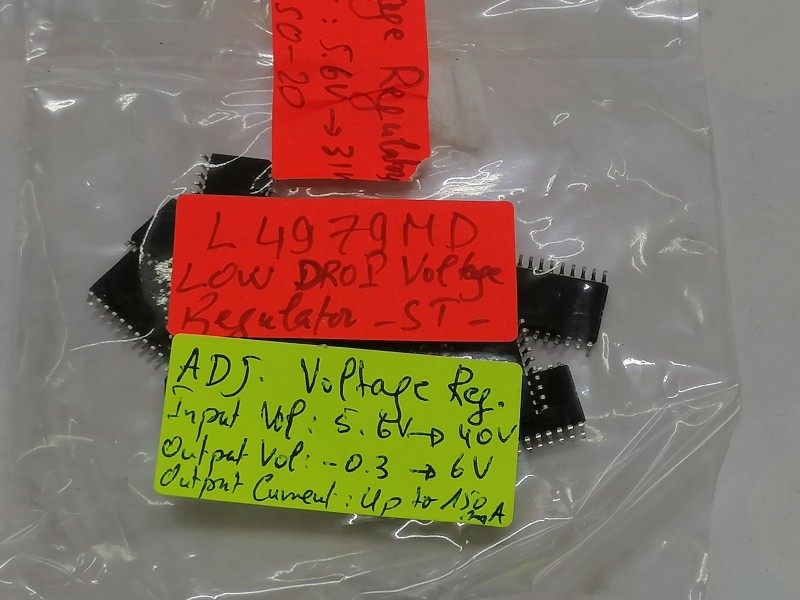 age Regulator
: 5.6V → 31V
50-20
L4979MD
LOW DROP Voltage
Regulator - ST -
ADJ. Voltage Reg.
Input Vol: 5.6V → 40V
Output Vol: -0.3 → 6V
Output Current: Up to 150 mA